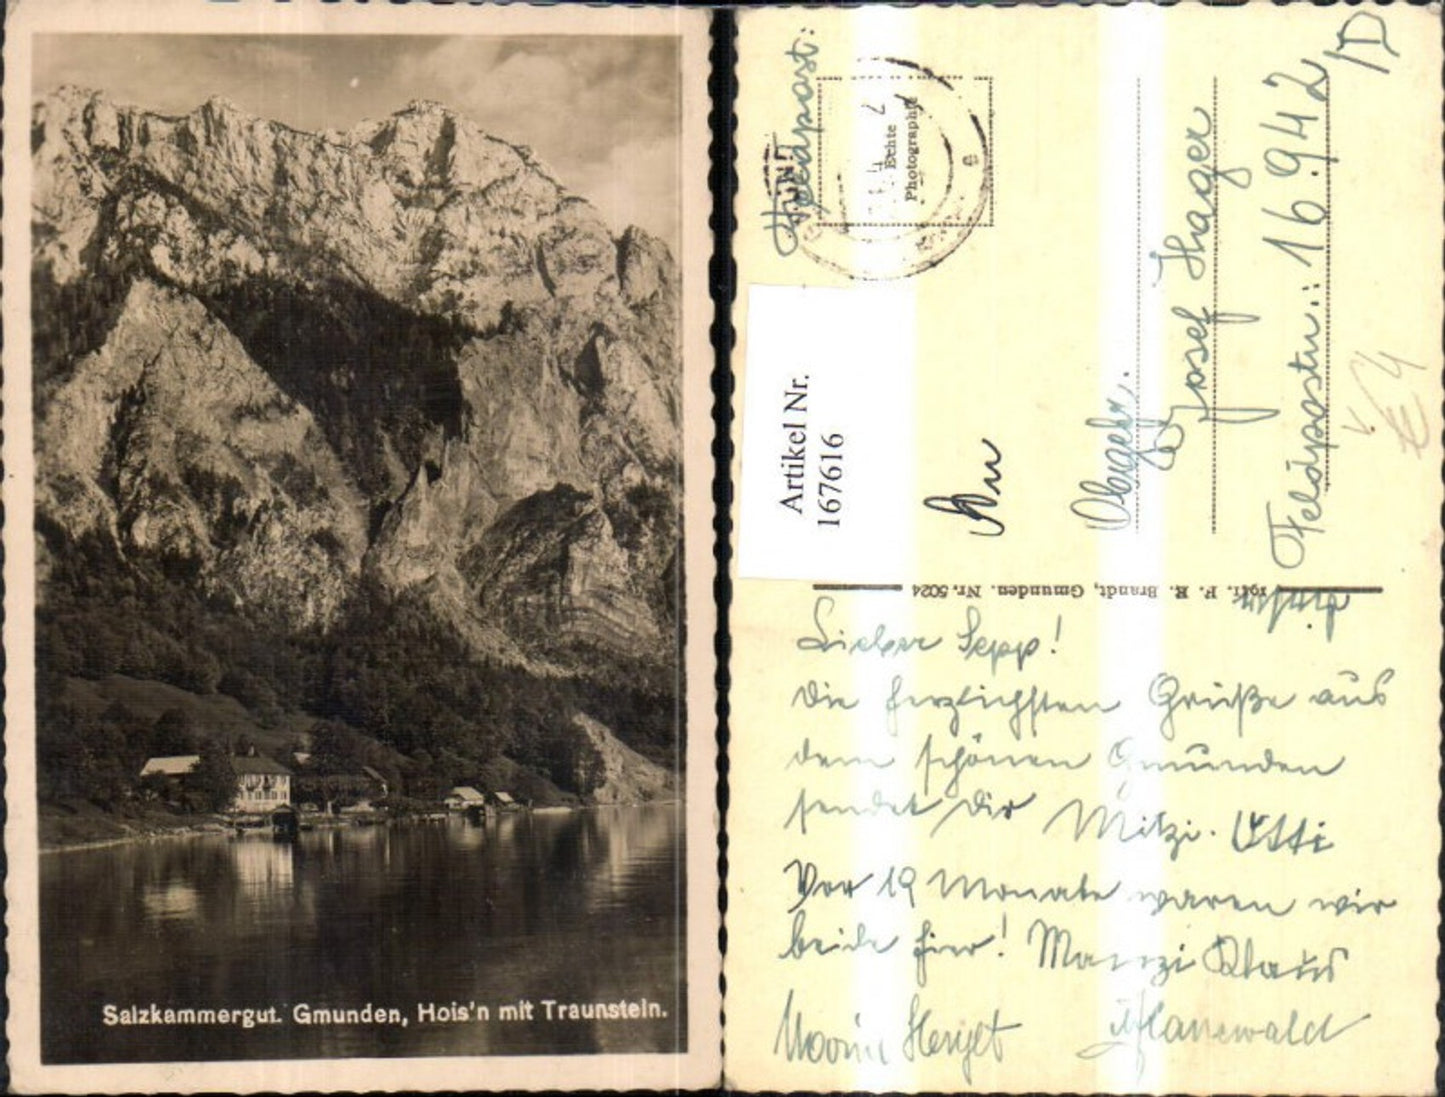 Salzkammergut. Gmunden, Hois'n mit Traunstein.
Feldpost:
Echte
Photographie
Artikel Nr.
167616
An
Obergefr.
Josef Hager
Feldpostnr.: 16.942 D
1941. F. E. Brandt, Gmunden. Nr. 5024
Lieber Sepp!
Die herzlichsten Grüße aus
dem schönen Gmunden
sendet Dir Mitzi.
Vor 19 Monate waren wir
beide hier!